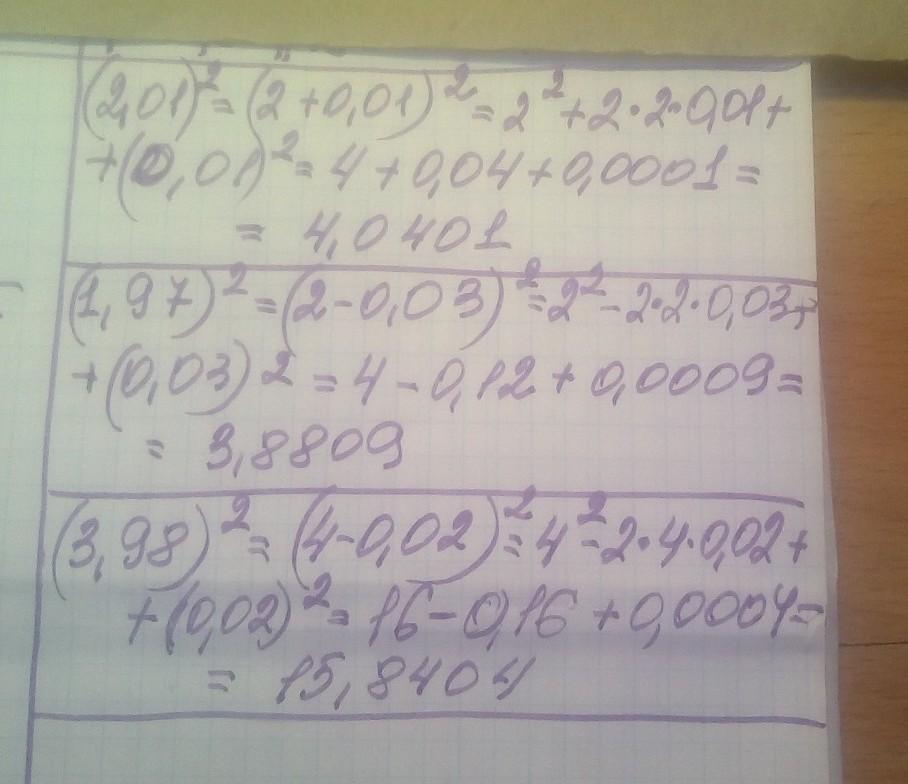 (2,01)² = (2 + 0,01)² = 2² + 2·2·0,01 +
+ (0,01)² = 4 + 0,04 + 0,0001 =
= 4,0401
(1,97)² = (2 - 0,03)² = 2² - 2·2·0,03 +
+ (0,03)² = 4 - 0,12 + 0,0009 =
= 3,8809
(3,98)² = (4 - 0,02)² = 4² - 2·4·0,02 +
+ (0,02)² = 16 - 0,16 + 0,0004 =
= 15,8404